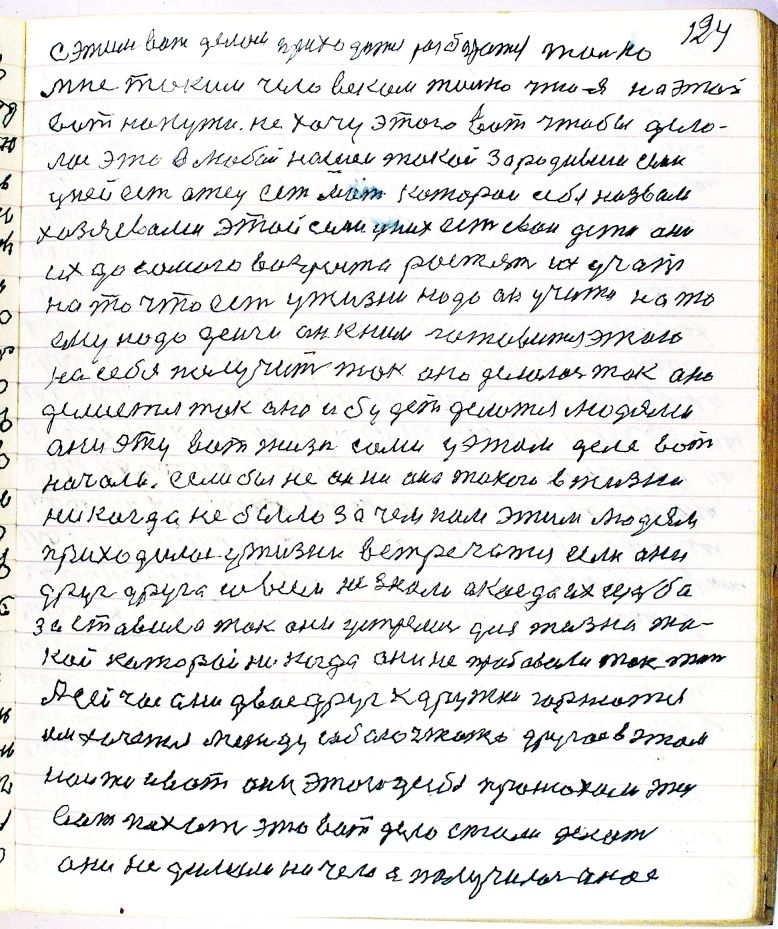 124
с этим вот делом приходится разбиратся толко
мне таким человеком толко что я на этой
вот на пути. не хочу этого вот чтобы дело-
лос это в любой нашей такой зародившей семи
у ней ест отец ест мат которои себя назвали
хозяевами этой семи у них ест свои дети они
их до самого возроста ростят их учат
на то что ест у жизни надо он учится на то
ему надо денги он к ним готовится этого
на себя получит так оно делалос так оно
делается так оно и будет делатся людями
они эту вот жизн сами у этом деле вот
начали. если бы не они она такого в жизни
никогда не было зачем нам этим людям
приходилос у жизни встречатся если они
друг друга совсем не знали а когда их служба
заставила так они устремис для жизни та-
кой которой никогда они не пробовали так
А сейчас они двое друг к дружки
им хочется между собою чтото другое в этом
вот они этого себя
вот это вот дело стали делат
они не думали ничего а получилос оное